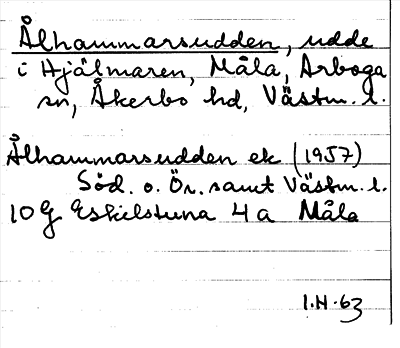 Ålhammarsudden, udde
i Hjälmaren, Måla, Arboga
sn, Åkerbo hd, Västm. l.
Ålhammarsudden ek (1957)
Söd. o. Ör. samt Västm. l.
10 G Eskilstuna 4 a Måla
I.H.63